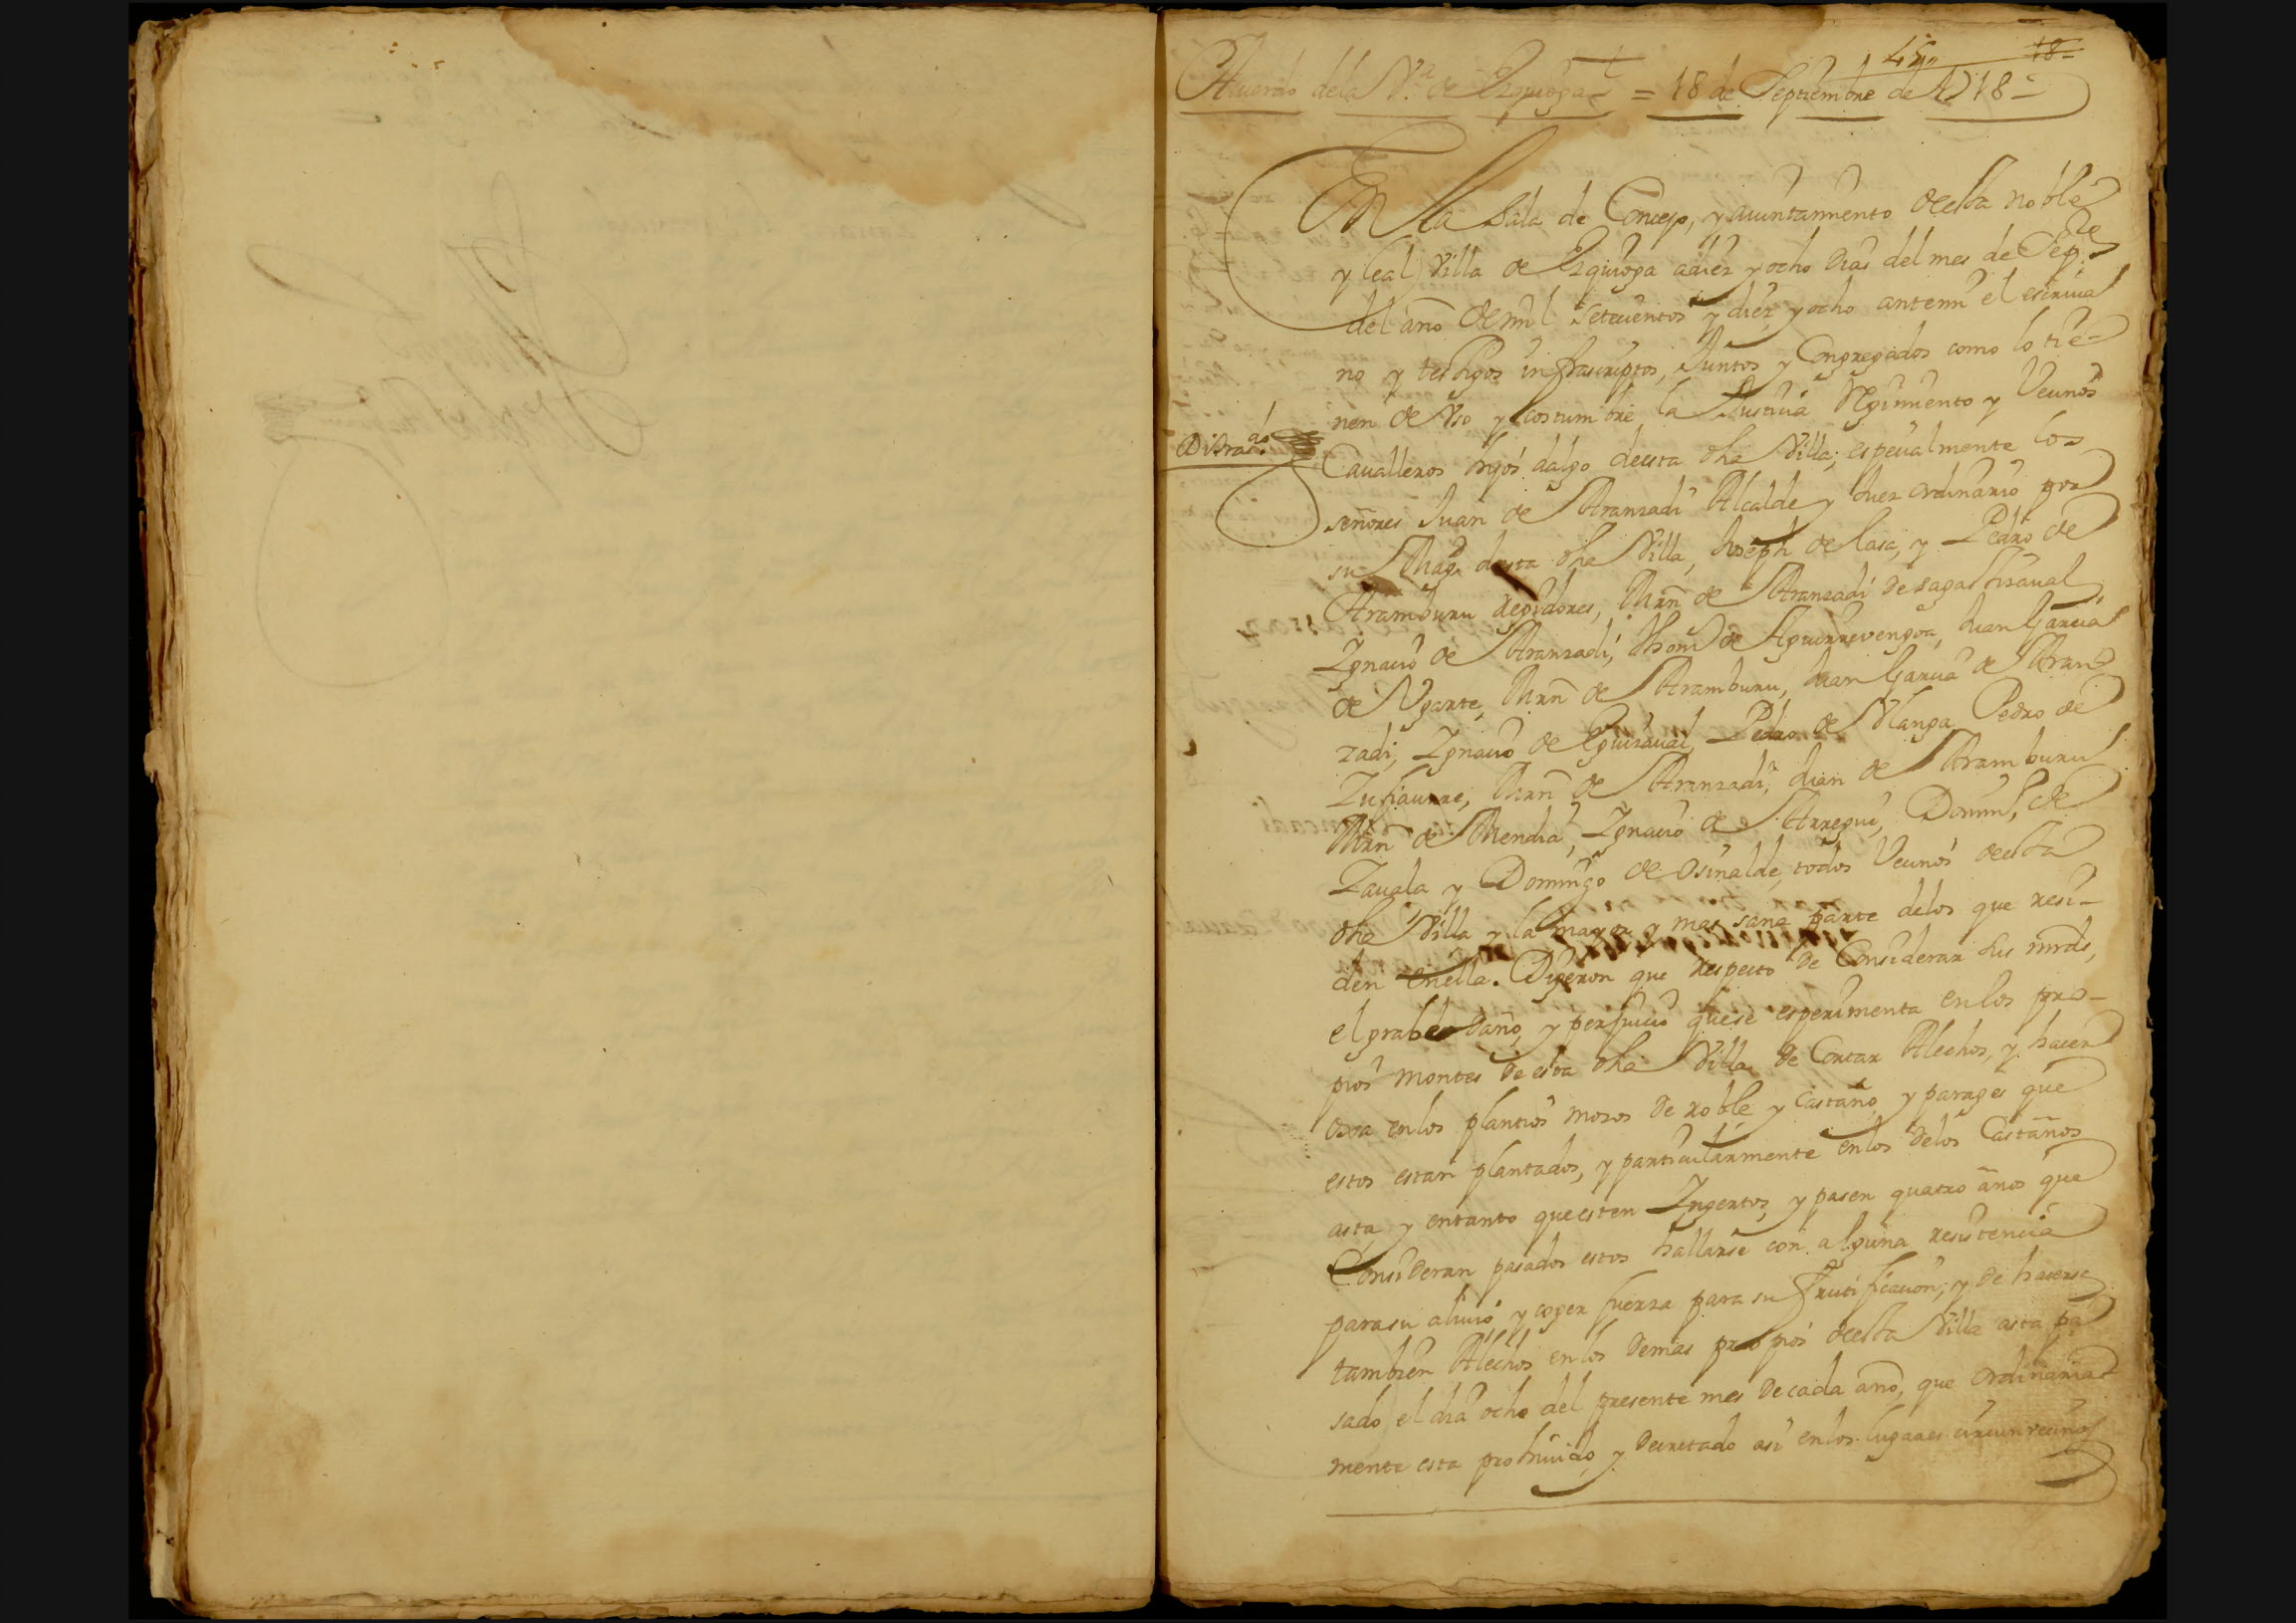 45 18
Acuerdo dela V.ª de Ezquioga = 18 de Septiembre de 1718 =
En la Sala de Concejo, y aiuntamiento deesta noble
y leal Villa de Ezquioga adiez y ocho dias del mes de Sep.re
del año de mil setecientos y diez y ocho antemi el escriua
no y testigos infrascriptos, Juntos y Congregados como lo tie-
nen de Vso y costumbre la Justicia Regimiento y Vecinos
Sacado
Caualleros hijos dalgo deesta dha Villa; especialmente los
señores Juan de Aranzadi Alcalde y Juez ordinario por
su Mag.d desta dha Villa, Joseph de lasa, y Pedro de
Aramburu regidores, Mrñ de Aranzadi de sagastizaual,
Ignacio de Aranzadi, Thom.s de Aguirrevengoa, Juan Garcia
de Vgarte, Mrñ de Aramburu, Juan Garcia de Aran
zadi, Ignacio de Eguizaual, Pedro de Vlanga Pedro de
Zufiaurre, Mrñ de Aranzadi, Juan de Aramburu
Mrñ de Mendia, Ignacio de Arregui, Domin.o de
Zauala y Domingo de Osinalde, todos Vecinos deesta
dha Villa y la mayor y mas sana parte delos que resi-
den enella. Digeron que respecto de Considerar sus mrds,
el grabe daño, y perjuicio quese esperimenta enlos pro-
pios montes de esta dha Villa de Cortar Alechos, y hacer
osoa enlos plantios mozos de roble y Castaño, y parages que
estos estan plantados, y particularmente enlos delos Castaños
asta y entanto que esten Ingertos, y pasen quatro años que
Consideran pasados estos hallarse con alguna resistencia
parasu aliuio, y coger fuerza para su frutificacion; y de hacerse
tambien Alechos enlos demas propios deesta Villa asta pa
sado el dia ocho del presente mes de cada año, que ordinaria
mente esta prohiuido, y decretado asi enlos lugares circunvecinos